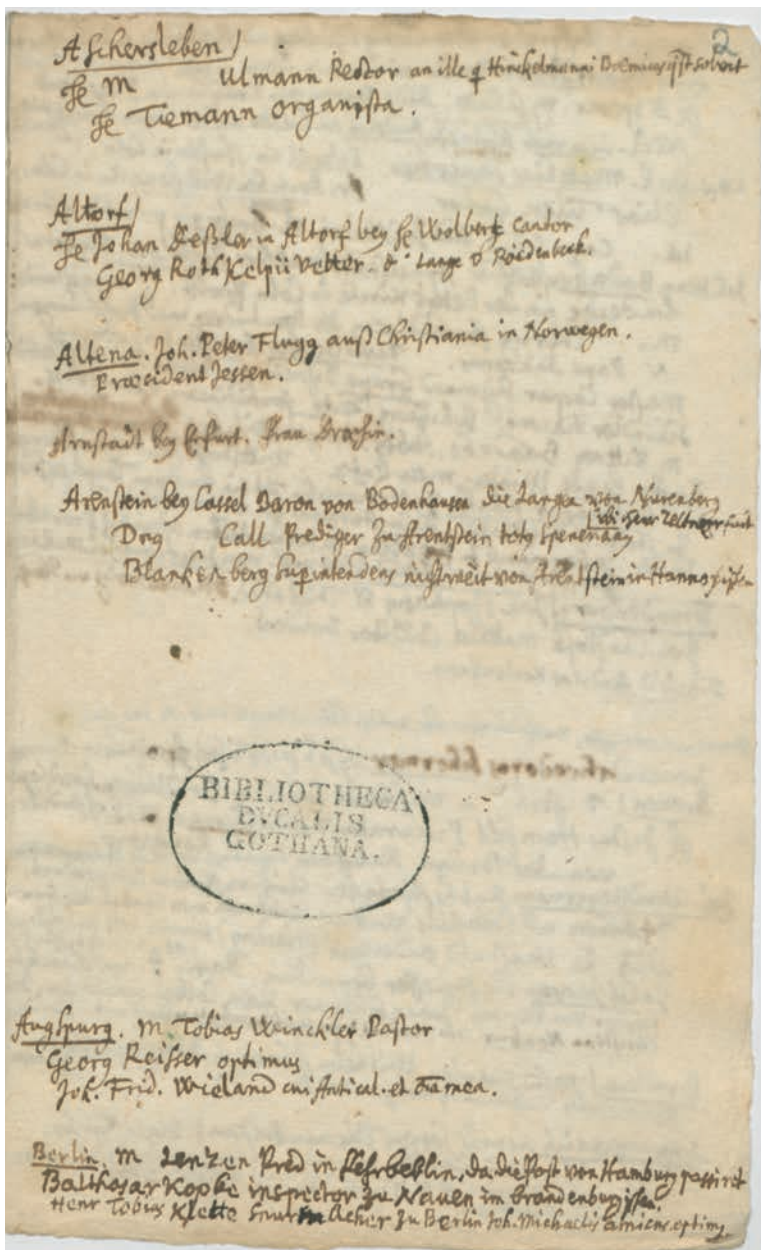 2
Aschersleben/
H M Ulmann Rector an ille Hinckelmanni
H Tiemann organista.
Altorf/
H Johan Keßler in Altorf bey H Wolbert Cantor
Georg Roth Kelpii Vetter. Lange Roedenbeck.
Altena. Joh. Peter Flugg auß Christiania in Norwegen.
Praesident Jessen.
Arnstadt bey Erfurt. Frau
Arenstein bey Cassel Baron von Bodenhausen die Langen von Nurenberg
ubi Herr Zeltner fuit
Call Prediger zu Arentstein
Blankenberg Supintendens nicht weit von Arentstein in
BIBLIOTHECA
DVCALIS
GOTHANA.
Augspurg. M. Tobias Winckler Pastor
Georg Reisser optimus
Joh. Frid. Wieland cui Antical. et
Berlin. M Lenzen Pred in Fehrbellin, da die Post von Hamburg passiret
Balthasar Kopke inspector zu Nauen im brandenburgischen.
Henr Tobias Klette zu Berlin Joh. Michaelis amicus optimus